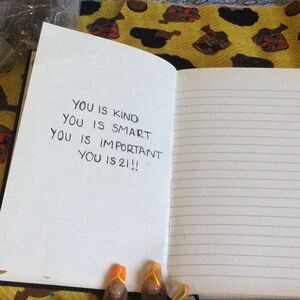 YOU IS KIND
YOU IS SMART
YOU IS IMPORTANT
YOU IS 21!!